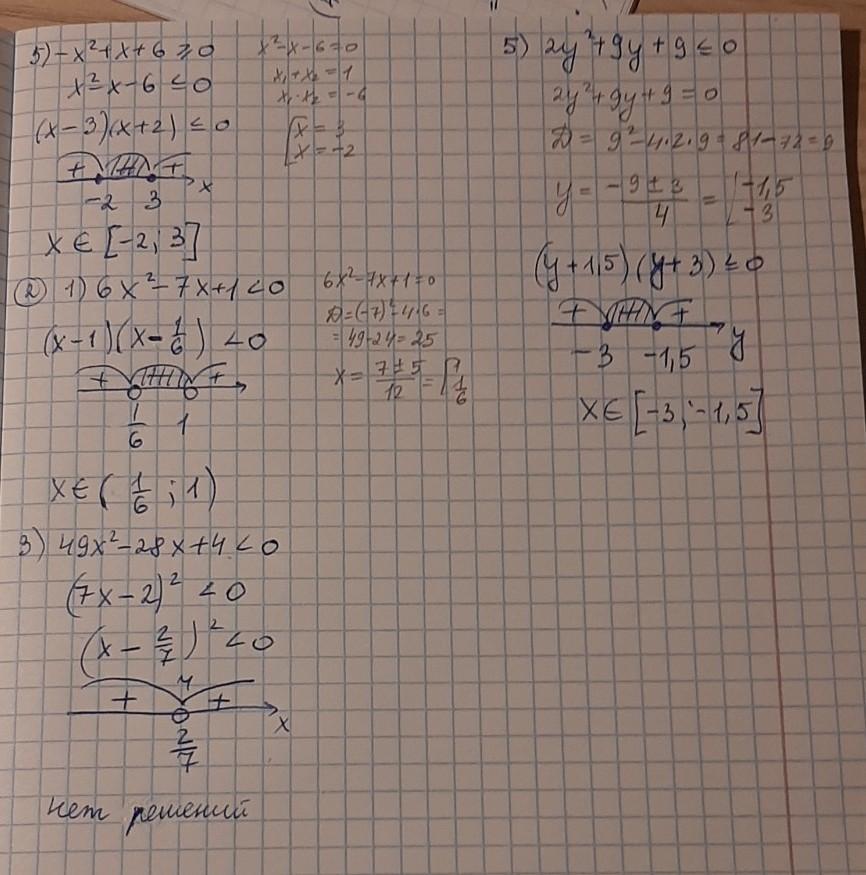 5) -x²+x+6 ≥ 0
x²-x-6 ≤ 0
(x-3)(x+2) ≤ 0
+ +
-2 3 x
x ∈ [-2; 3]
x²-x-6=0
x₁+x₂ = 1
x₁·x₂ = -6
[x = 3
x = -2
② 1) 6x²-7x+1<0
(x-1)(x-1/6) <0
+ +
1/6 1
x∈( 1/6 ; 1)
6x²-7x+1=0
D=(-7)²-4·6=
=49-24=25
x = (7±5)/12 = [1 1/6
3) 49x²-28x+4<0
(7x-2)² <0
(x - 2/7)² <0
+ +
2/7 x
нет решений
5) 2y²+9y+9 ≤ 0
2y²+9y+9=0
D = 9²-4·2·9=81-72=9
y = (-9±3)/4 = [-1,5 -3
(y+1,5)(y+3) ≤ 0
+ +
-3 -1,5 y
x∈ [-3; -1,5]